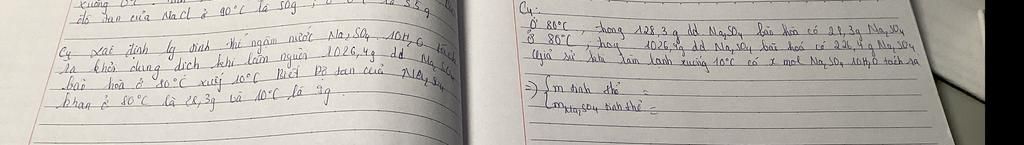 xuống 0°C
độ tan của NaCl ở 90°C là 50g
C4 xác định lg tinh thể ngậm nước Na2SO4.10H2O tách
ra khỏi dung dịch khi làm nguội 1026,4g dd Na2SO4
bão hoà ở 80°C xuống 10°C Biết độ tan của Na2SO4
khan ở 80°C là 28,3g và 10°C là 9g.
C4:
Ở 80°C, trong 128,3 g dd Na2SO4 bão hoà có 28,3g Na2SO4
Ở 80°C, trong 1026,4g dd Na2SO4 bão hoà có 226,4g Na2SO4
Giả sử khi làm lạnh xuống 10°C có x mol Na2SO4.10H2O tách ra
=> { m tinh thể =
m Na2SO4 tinh thể =